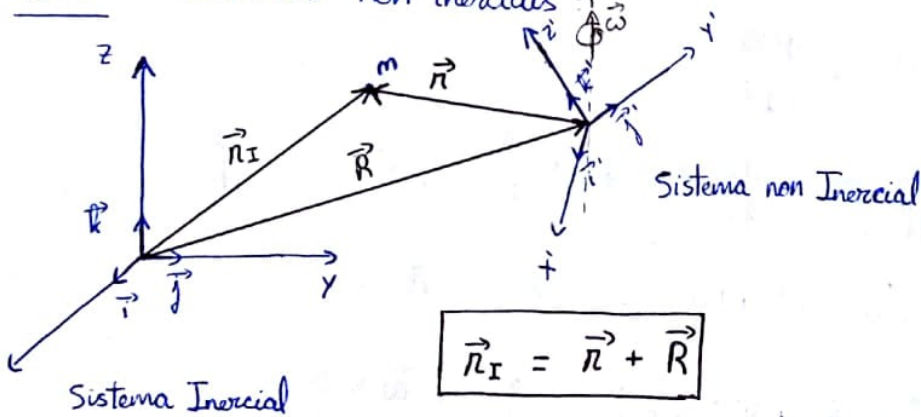 non inerciais
z
m
n⃗
ω⃗
y'
n⃗I
R⃗
k⃗
j⃗'
i⃗'
Sistema non Inercial
i⃗
j⃗
y
n⃗I = n⃗ + R⃗
Sistema Inercial